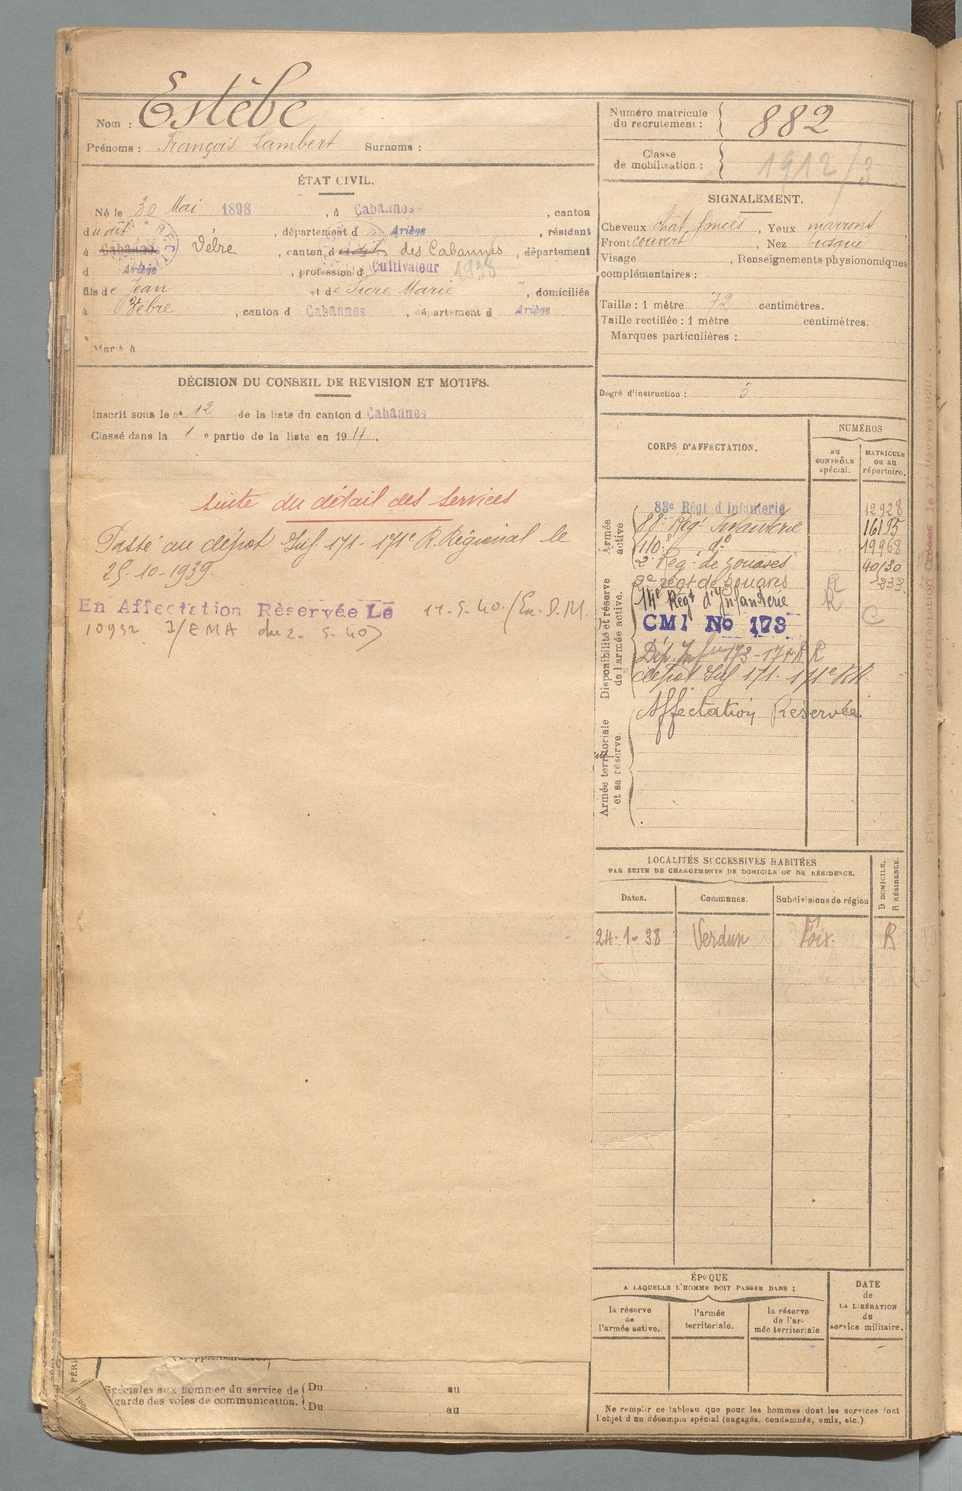 Nom : Estèbe
Prénoms : François Lambert Surnoms :
ÉTAT CIVIL.
Né le 30 Mai 1898, à Cabannes, canton
dudit, département d Ariège, résidant
à Cabannes Vèbre, canton dudit des Cabannes, département
d Ariège, profession d Cultivateur
fils de Jean et de Sicre Marie, domiciliés
à Vèbre, canton d Cabannes, département d Ariège
Marié à
DÉCISION DU CONSEIL DE REVISION ET MOTIFS.
Inscrit sous le nº 12 de la liste du canton d Cabannes
Classé dans la 1 e partie de la liste en 1917.
suite du détail des services
Passé au dépôt Inf. 171 - 171e R. Régional le
25-10-1939.
En Affectation Rèservée Le 11-5-40. (En. D.M.
10932 I/EMA du 2. 5-40)
Numéro matricule
du recrutement : 882
Classe
de mobilisation : 1912/3
SIGNALEMENT.
Cheveux chât. foncés, Yeux marrons
Front couvert, Nez busqué
Visage , Renseignements physionomiques
complémentaires :
Taille : 1 mètre 72 centimètres.
Taille rectifiée : 1 mètre centimètres.
Marques particulières :
Degré d'instruction : 3
CORPS D'AFFECTATION.
NUMÉROS
AU
CONTRÔLE
spécial.
MATRICULE
OU AU
répertoire.
Armée
active
83e Régt d'infanterie 12928
88e Rég. Infanterie 16195
110e dº 19968
2e Rég. de Zouaves
Disponibilité et réserve
de l'armée active.
2e régt de zouaves R
14e Régt d'Infanterie R C
CMI No 173
Dép. Inf 173-171 R R
dépôt Inf 171. 171e RR.
Armée territoriale
et sa réserve.
Affectation Réservée
LOCALITÉS SUCCESSIVES HABITÉES
PAR SUITE DE CHANGEMENTS DE DOMICILE OU DE RÉSIDENCE.
Dates. Communes. Subdivisions de région
D DOMICILE.
R RÉSIDENCE.
24-1-38 Verdun Foix. R
ÉPOQUE
A LAQUELLE L'HOMME DOIT PASSER DANS :
la réserve
de
l'armée active.
l'armée
territoriale.
la réserve
de l'ar-
mée territoriale
DATE
de
LA LIBÉRATION
du
service militaire.
Spéciales aux hommes du service de
garde des voies de communication.
Du au
Du au
Ne remplir ce tableau que pour les hommes dont les services font
l'objet d'un décompte spécial (engagés, condamnés, omis, etc.).